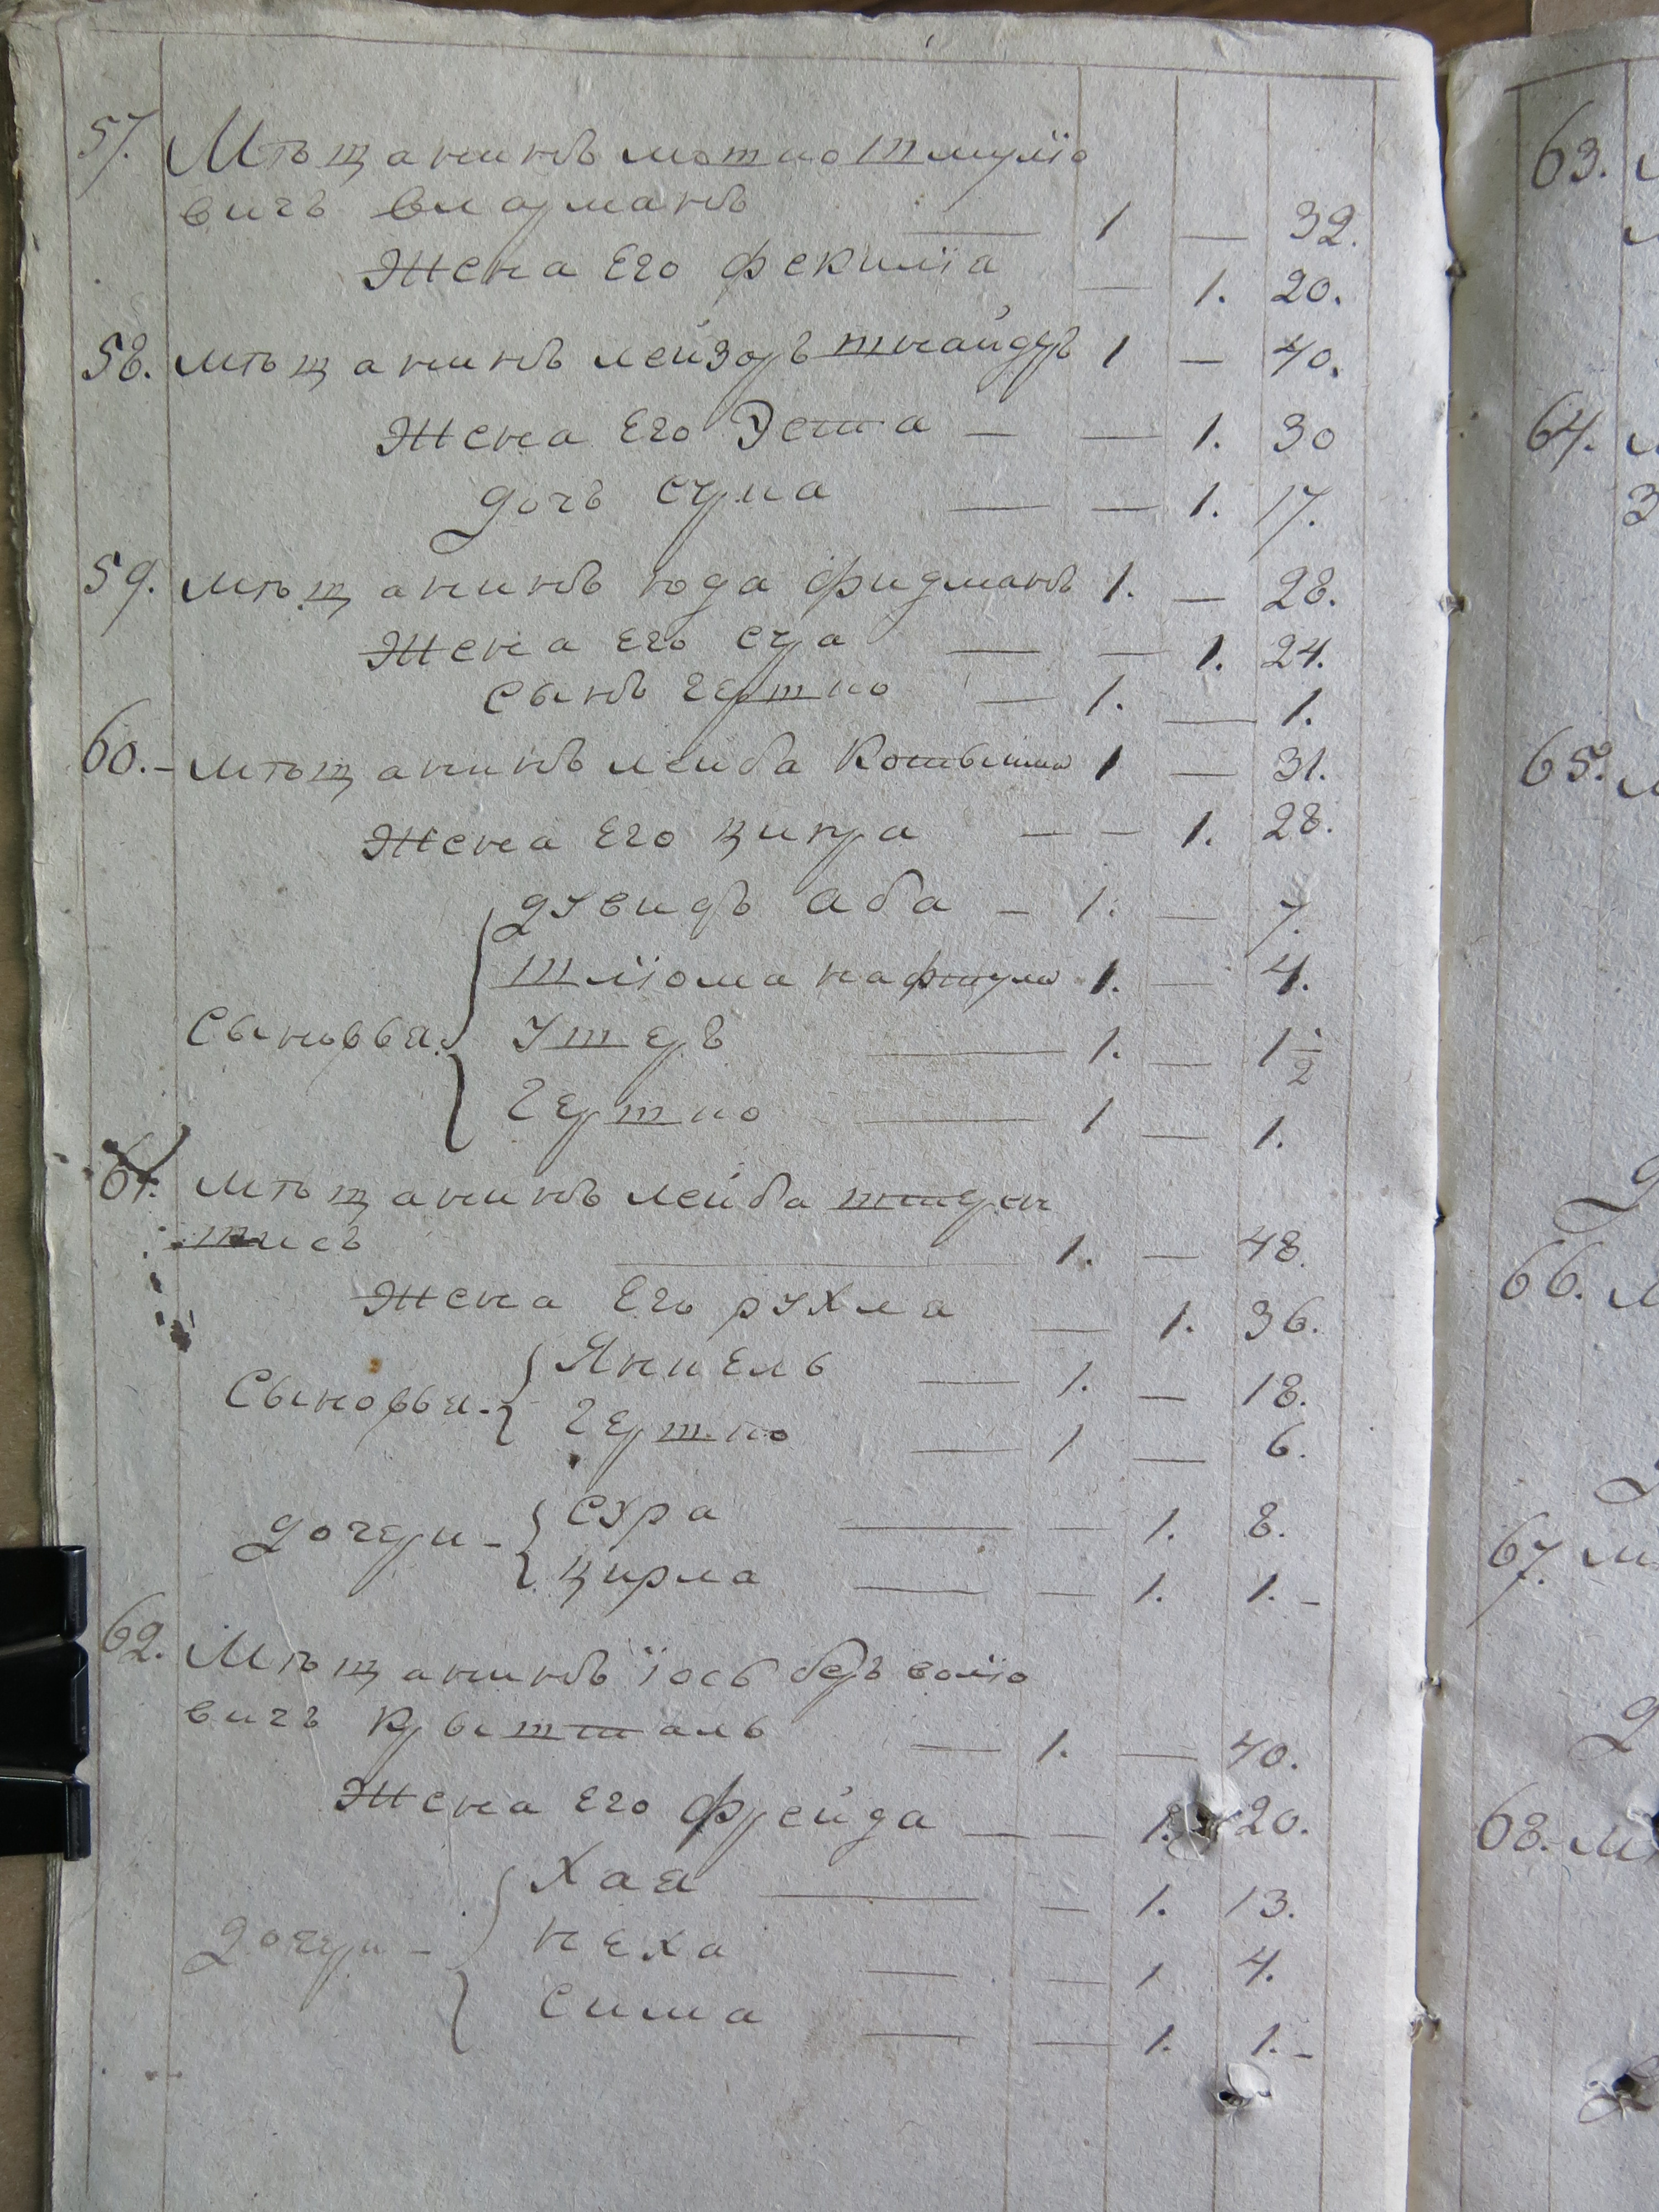 57. Мѣщанинъ мошко шмуліо
вичъ видрманъ — 1 — 32.
Жена Его фекиліа — 1. 20.
58. мѣщанинъ лейзоръ шнайдръ 1 — 40.
Жена Его Эстa — — 1. 30
дочъ сума — — 1. 17.
59. мѣщанинъ юда фидманъ 1. — 28.
Жена Его суа — — 1. 24.
Сынъ гершко — 1. — 1.
60. – мѣщанинъ лейба 1 — 31.
Жена Его цирга — — 1. 28.
дувидъ аба — 1. — 7.
шліома нафтула 1. — 4.
Сыновья. Ушеръ — 1. — 1 1/2
гершко — 1 — 1.
61. мѣщанинъ лейба
— 1. — 48.
Жена Его рухла — 1. 36.
Сыновья – Янкель — 1. — 18.
гершко — 1 — 6.
дочери – сура — — 1. 8.
цирла — — 1. 1. –
62. Мѣщанинъ іось беръ воліо
вичъ крышталь — 1. — 40.
Жена Его фрейда — — 1. 20.
Хая — — 1. 13.
дочери – неха — — 1 4.
сима — — 1. 1. –
63.
64.
З
65.
66.
67. м
68. м